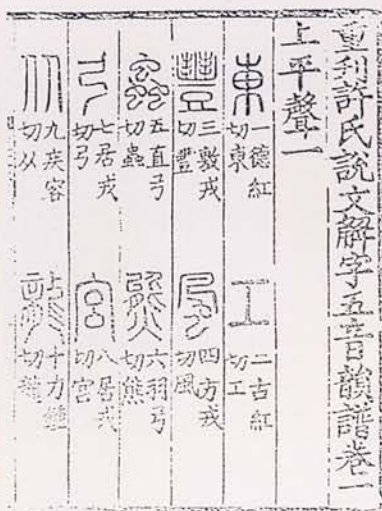 重刋許氏說文解字五音韻譜卷一
上平聲一
東 一德紅切東 工 二古紅切工
豐 三敷戎切豐 風 四方戎切風
蟲 五直弓切蟲 熊 六羽弓切熊
弓 七居戎切弓 宮 八居戎切宮
从 九疾容切从 龍 十力切